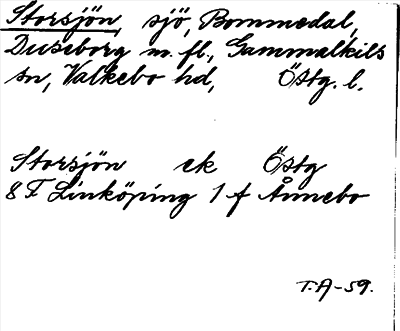 Storsjön, sjö, Bommedal,
Duseborg m. fl., Gammalkils
sn, Valkebo hd, Östg. l.
Storsjön ek Östg
8 F Linköping 1 f Ånnebo
T.A-59.